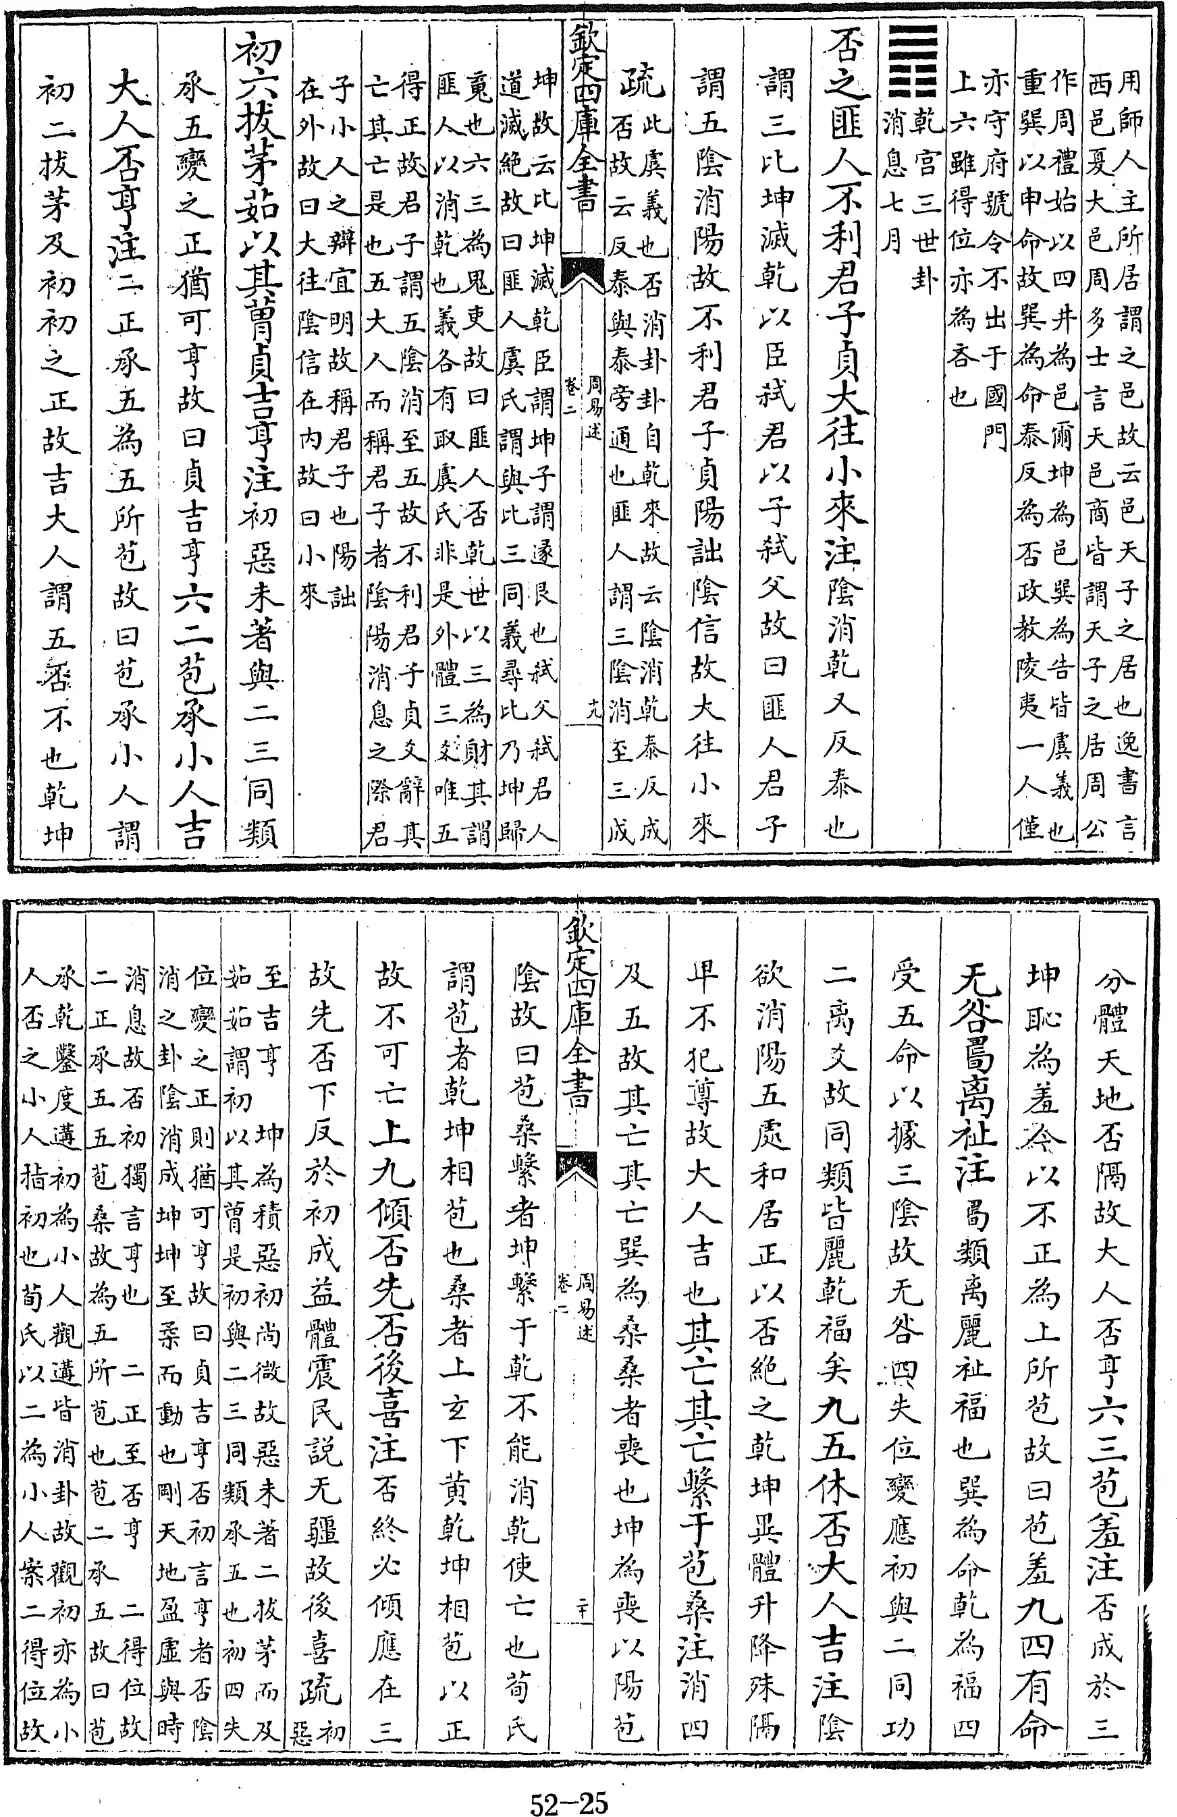 用師人主所居謂之邑故云邑天子之居也逸書言
西邑夏大邑周多士言天邑商皆謂天子之居周公
作周禮始以四井為邑爾坤為邑巽為告皆虞義也
重巽以申命故巽為命泰反為否政教陵夷一人僅
亦守府號令不出于國門
上六雖得位亦為吝也
䷋乾宮三世卦
消息七月
否之匪人不利君子貞大往小來注陰消乾又反泰也
謂三比坤滅乾以臣弒君以子弒父故曰匪人君子
謂五陰消陽故不利君子貞陽詘陰信故大往小來
疏此虞義也否消卦卦自乾來故云陰消乾泰反成
否故云反泰與泰旁通也匪人謂三陰消至三成
欽定四庫全書
周易述
卷二
十九
坤故云比坤滅乾臣謂坤子謂遂艮也弒父弒君人
道滅絕故曰匪人虞氏謂與比三同義尋比乃坤歸
䰟也六三為鬼吏故曰匪人否乾世以三為財其謂
匪人以消乾也義各有取虞氏非是外體三爻唯五
得正故君子謂五陰消至五故不利君子貞爻辭其
亡其亡是也五大人而稱君子者陰陽消息之際君
子小人之辯宜明故稱君子也陽詘
在外故曰大往陰信在内故曰小來
初六拔茅茹以其曹貞吉亨注初惡未著與二三同類
承五變之正猶可亨故曰貞吉亨六二苞承小人吉
大人否亨注二正承五為五所苞故曰苞承小人謂
初二拔茅及初初之正故吉大人謂五否不也乾坤
分體天地否隔故大人否亨六三苞羞注否成於三
坤恥為羞今以不正為上所苞故曰苞羞九四有命
无咎𠷎離祉注𠷎類離麗祉福也巽為命乾為福四
受五命以據三陰故无咎四失位變應初與二同功
二離爻故同類皆麗乾福矣九五休否大人吉注陰
欲消陽五處和居正以否絕之乾坤異體升降殊隔
卑不犯尊故大人吉也其亡其亡繫于苞桑注消四
及五故其亡其亡巽為桑桑者喪也坤為喪以陽苞
欽定四庫全書
周易述
卷二
二十
陰故曰苞桑繫者坤繫于乾不能消乾使亡也荀氏
謂苞者乾坤相苞也桑者上玄下黄乾坤相苞以正
故不可亡上九傾否先否後喜注否終必傾應在三
故先否下反於初成益體震民説无疆故後喜疏初
惡
至吉亨　坤為積惡初尚微故惡未著二拔茅而及
茹茹謂初以其曹是初與二三同類承五也初四失
位變之正則猶可亨故曰貞吉亨否初言亨者否陰
消之卦陰消成坤坤至柔而動也剛天地盈虛與時
消息故否初獨言亨也　二正至否亨　二得位故
二正承五五苞桑故為五所苞也苞二承五故曰苞
承乾鑿度遘初為小人觀遘皆消卦故觀初亦為小
人否之小人指初也荀氏以二為小人案二得位故
52-25